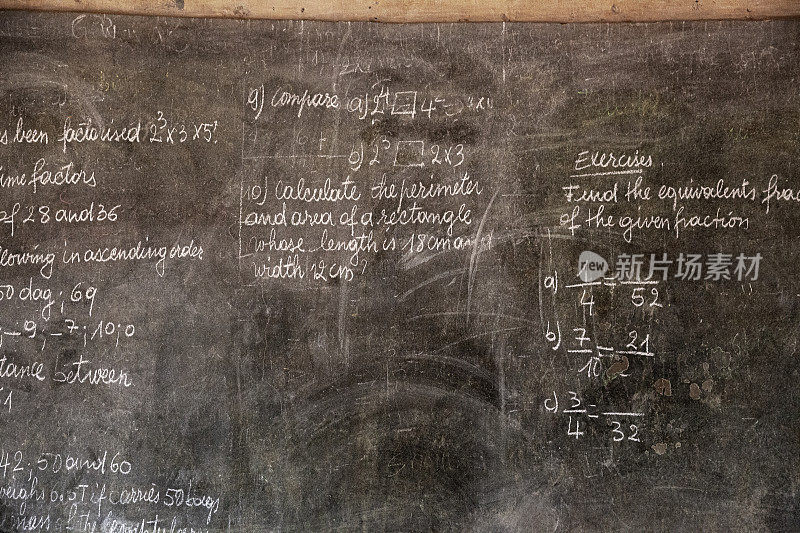 s been factorised 2³x3x5?
ime factors
of 28 and 36
llowing in ascending order
50 dag; 69
; -9; -7; 10; 0
tance between
1
42; 50 and 60
weighs 0.0T if carries 50 bags
9) Compare a) 2⁴ □ 4
b) 2³ □ 2x3
10) Calculate the perimeter
and area of a rectangle
whose length is 18cm an
width 12cm?
Exercises.
Find the equivalents frac
of the given fraction
a) 1/4 = /52
b) 7/10 = 21/
c) 3/4 = /32
new 新视觉中国